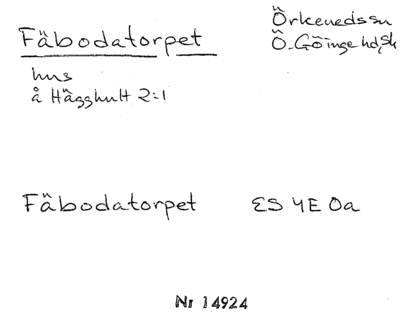 Fäbodatorpet
Örkeneds sn
Ö. Göinge hd, Sk
hus
å Hägghult 2:1
Fäbodatorpet ES 4E 0a
Nr 14924